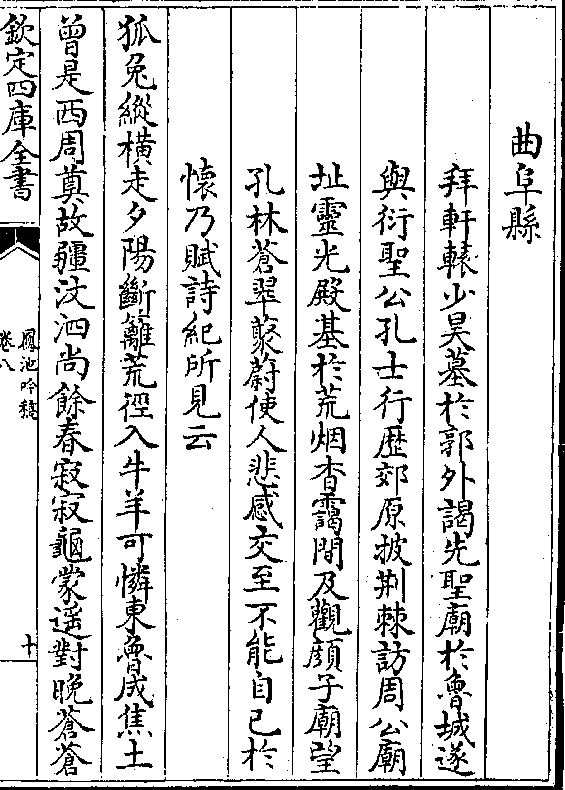 曲阜縣
拜軒轅少昊墓於郭外謁先聖廟於魯城遂
與衍聖公孔士行歷郊原披荆棘訪周公廟
址靈光殿基於荒烟杳靄間及觀顔子廟望
孔林蒼翠藂蔚使人悲感交至不能自已於
懷乃賦詩紀所見云
狐兔縱横走夕陽斷籬荒徑入牛羊可憐東魯成焦土
曾是西周奠故疆汶泗尚餘春寂寂龜蒙遥對晚蒼蒼
欽定四庫全書
鳳池吟稿
卷八
十